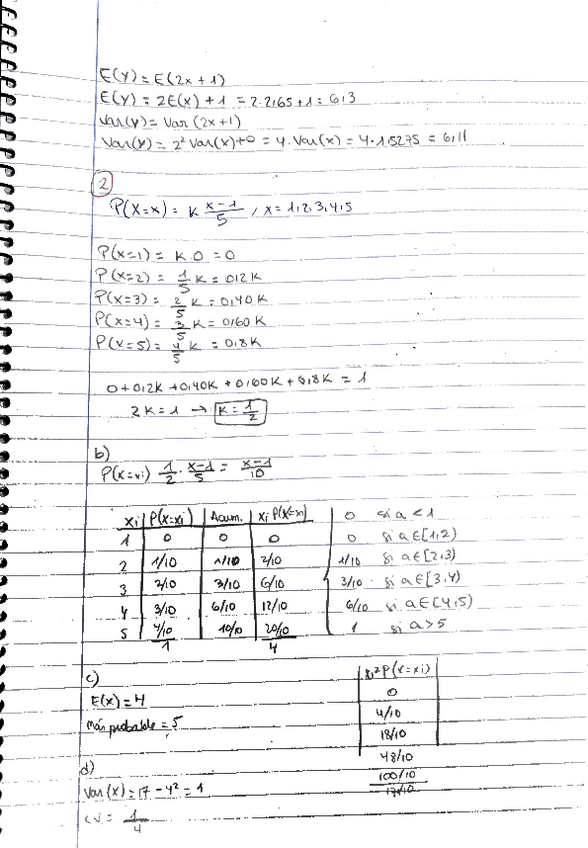 E(Y) = E(2x+1)
E(Y) = 2E(x) + 1 = 2·2,65 + 1 = 6,3
Var(Y) = Var(2x+1)
Var(Y) = 2² Var(x) + 0 = 4·Var(x) = 4·1,5275 = 6,11
2
P(X=x) = K (x-1)/5 , x = 1,2,3,4,5
P(X=1) = K·0 = 0
P(X=2) = 1/5 K = 0,2K
P(X=3) = 2/5 K = 0,40K
P(X=4) = 3/5 K = 0,60K
P(X=5) = 4/5 K = 0,8K
0 + 0,2K + 0,40K + 0,60K + 0,8K = 1
2K = 1 → K = 1/2
b)
P(X=xi) 1/2 · (x-1)/5 = (x-1)/10
xi | P(X=xi) | Acum. | xi P(X=xi) | 0 si a < 1
1 | 0 | 0 | 0 | 0 si a ∈ [1,2)
2 | 1/10 | 1/10 | 2/10 | 1/10 si a ∈ [2,3)
3 | 2/10 | 3/10 | 6/10 | 3/10 si a ∈ [3,4)
4 | 3/10 | 6/10 | 12/10 | 6/10 si a ∈ [4,5)
5 | 4/10 | 10/10 | 20/10 | 1 si a > 5
1 4
c)
E(x) = 4
más probable = 5
xi² P(X=xi)
0
4/10
18/10
48/10
100/10
d)
Var(x) = 17 - 4² = 1
CV = 1/4